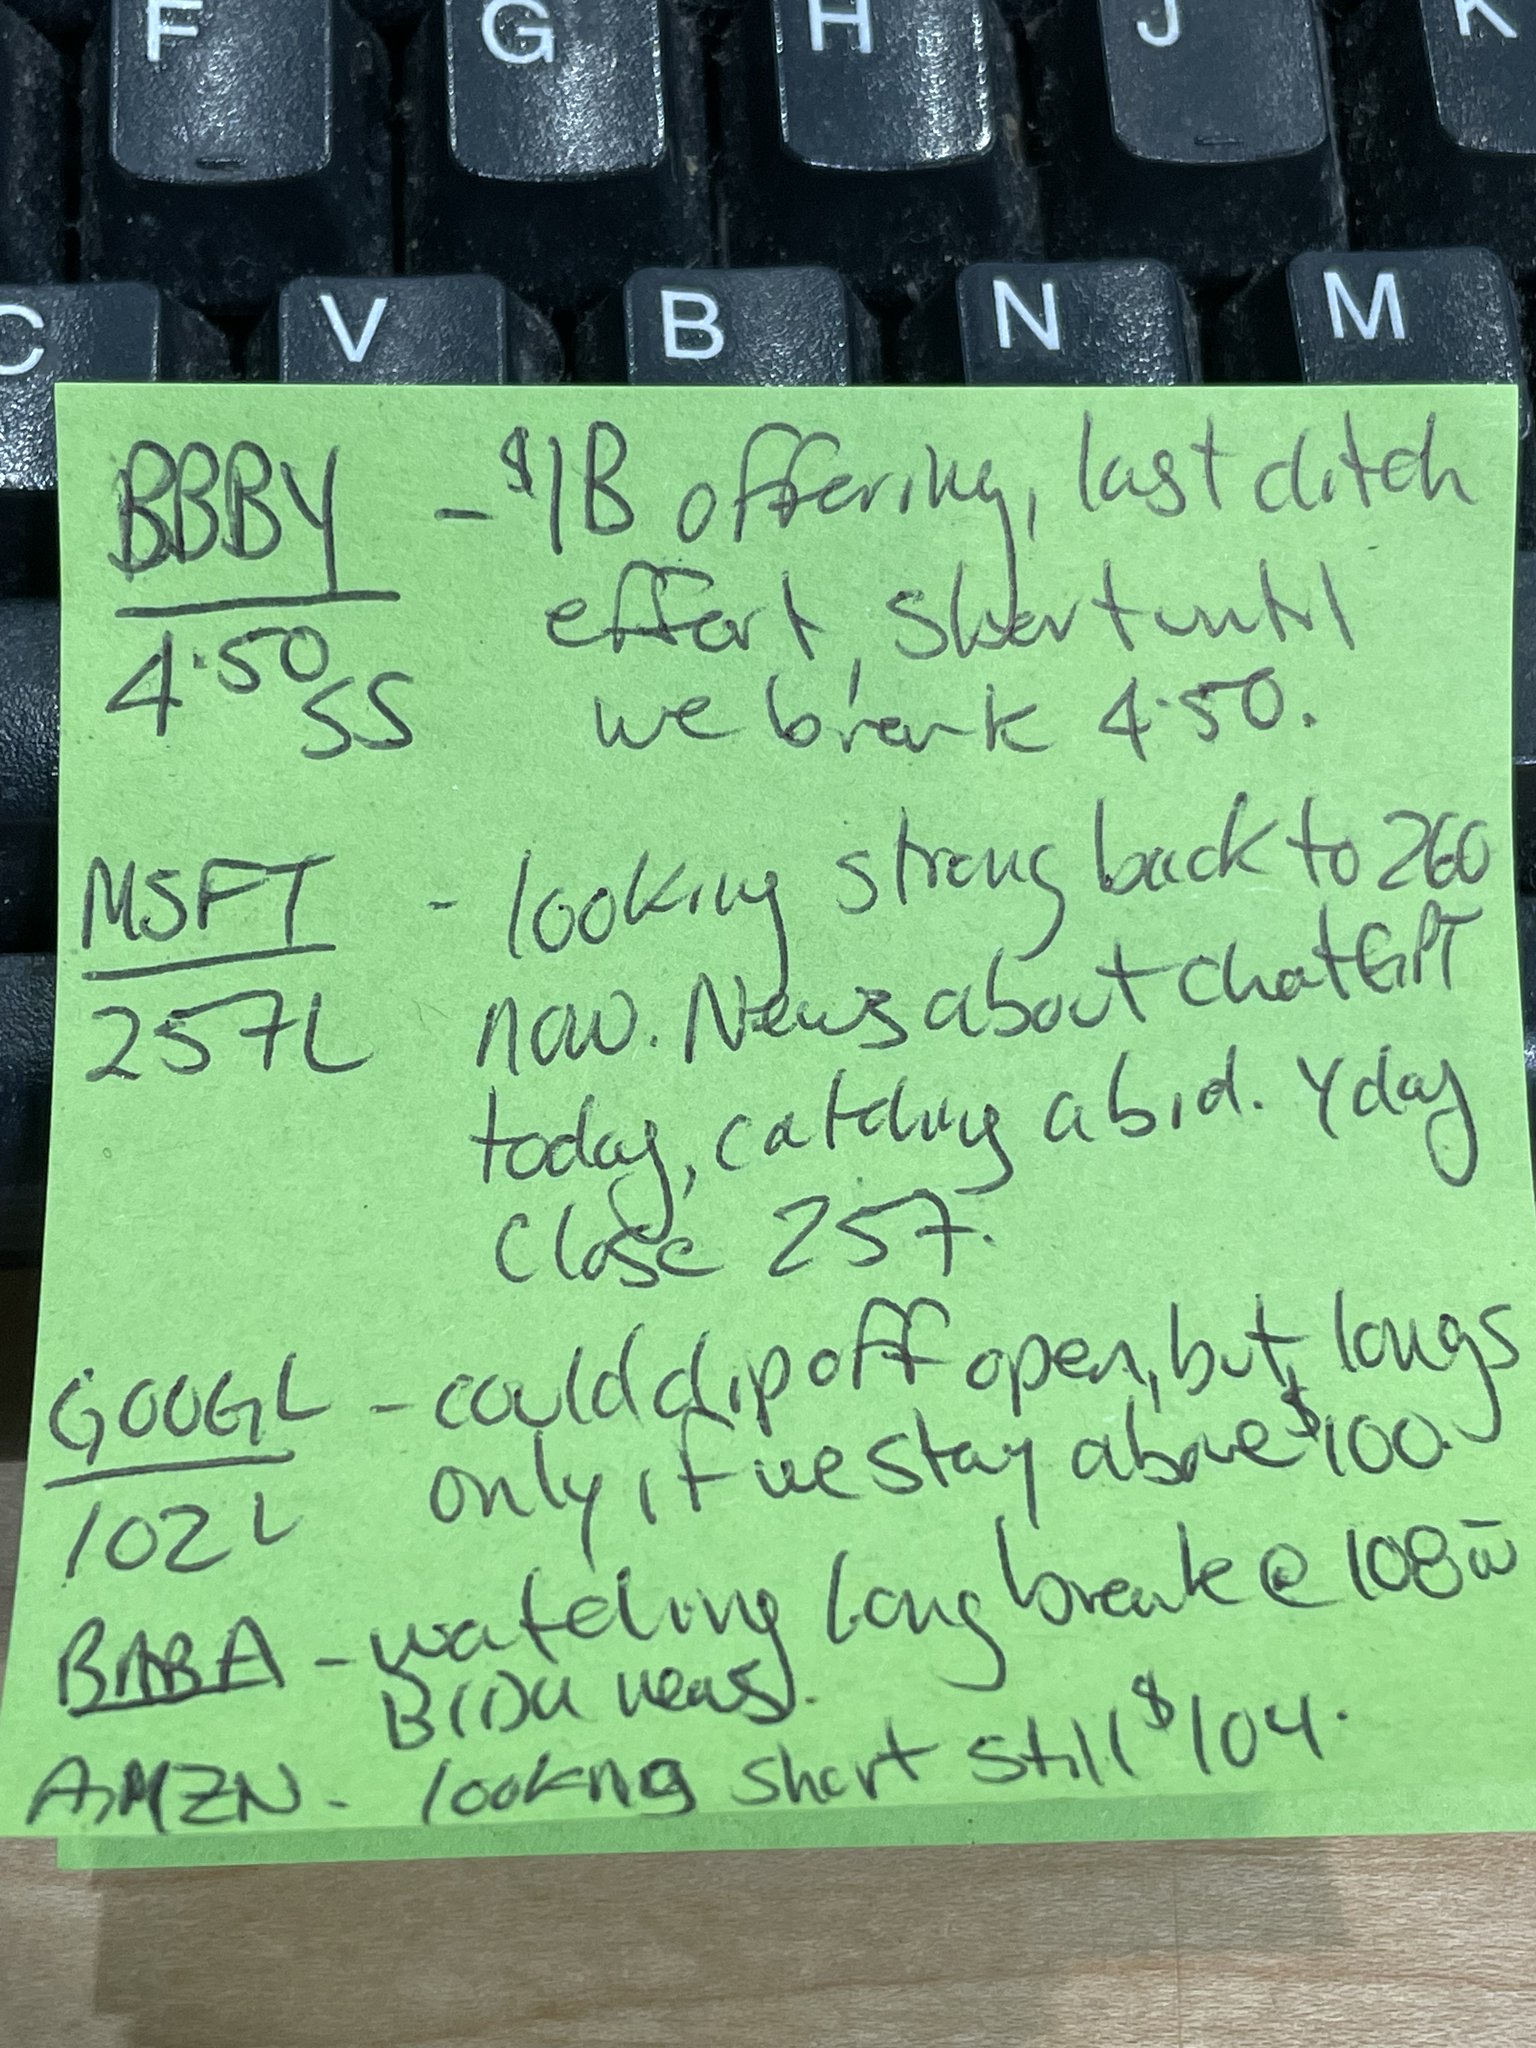 F G H J K
C V B N M
BBBY - $1B offering, last ditch
effort, short until
4.50 SS we break 4.50.
MSFT - looking strong back to 260
257L now. News about ChatGPT
today, catching a bid. Yday
close 257.
GOOGL - could dip off open, but longs
only, if we stay above $100.
102L
BABA - watching long break @ 108 w̄
BIDU news.
AMZN - looking short still $104.